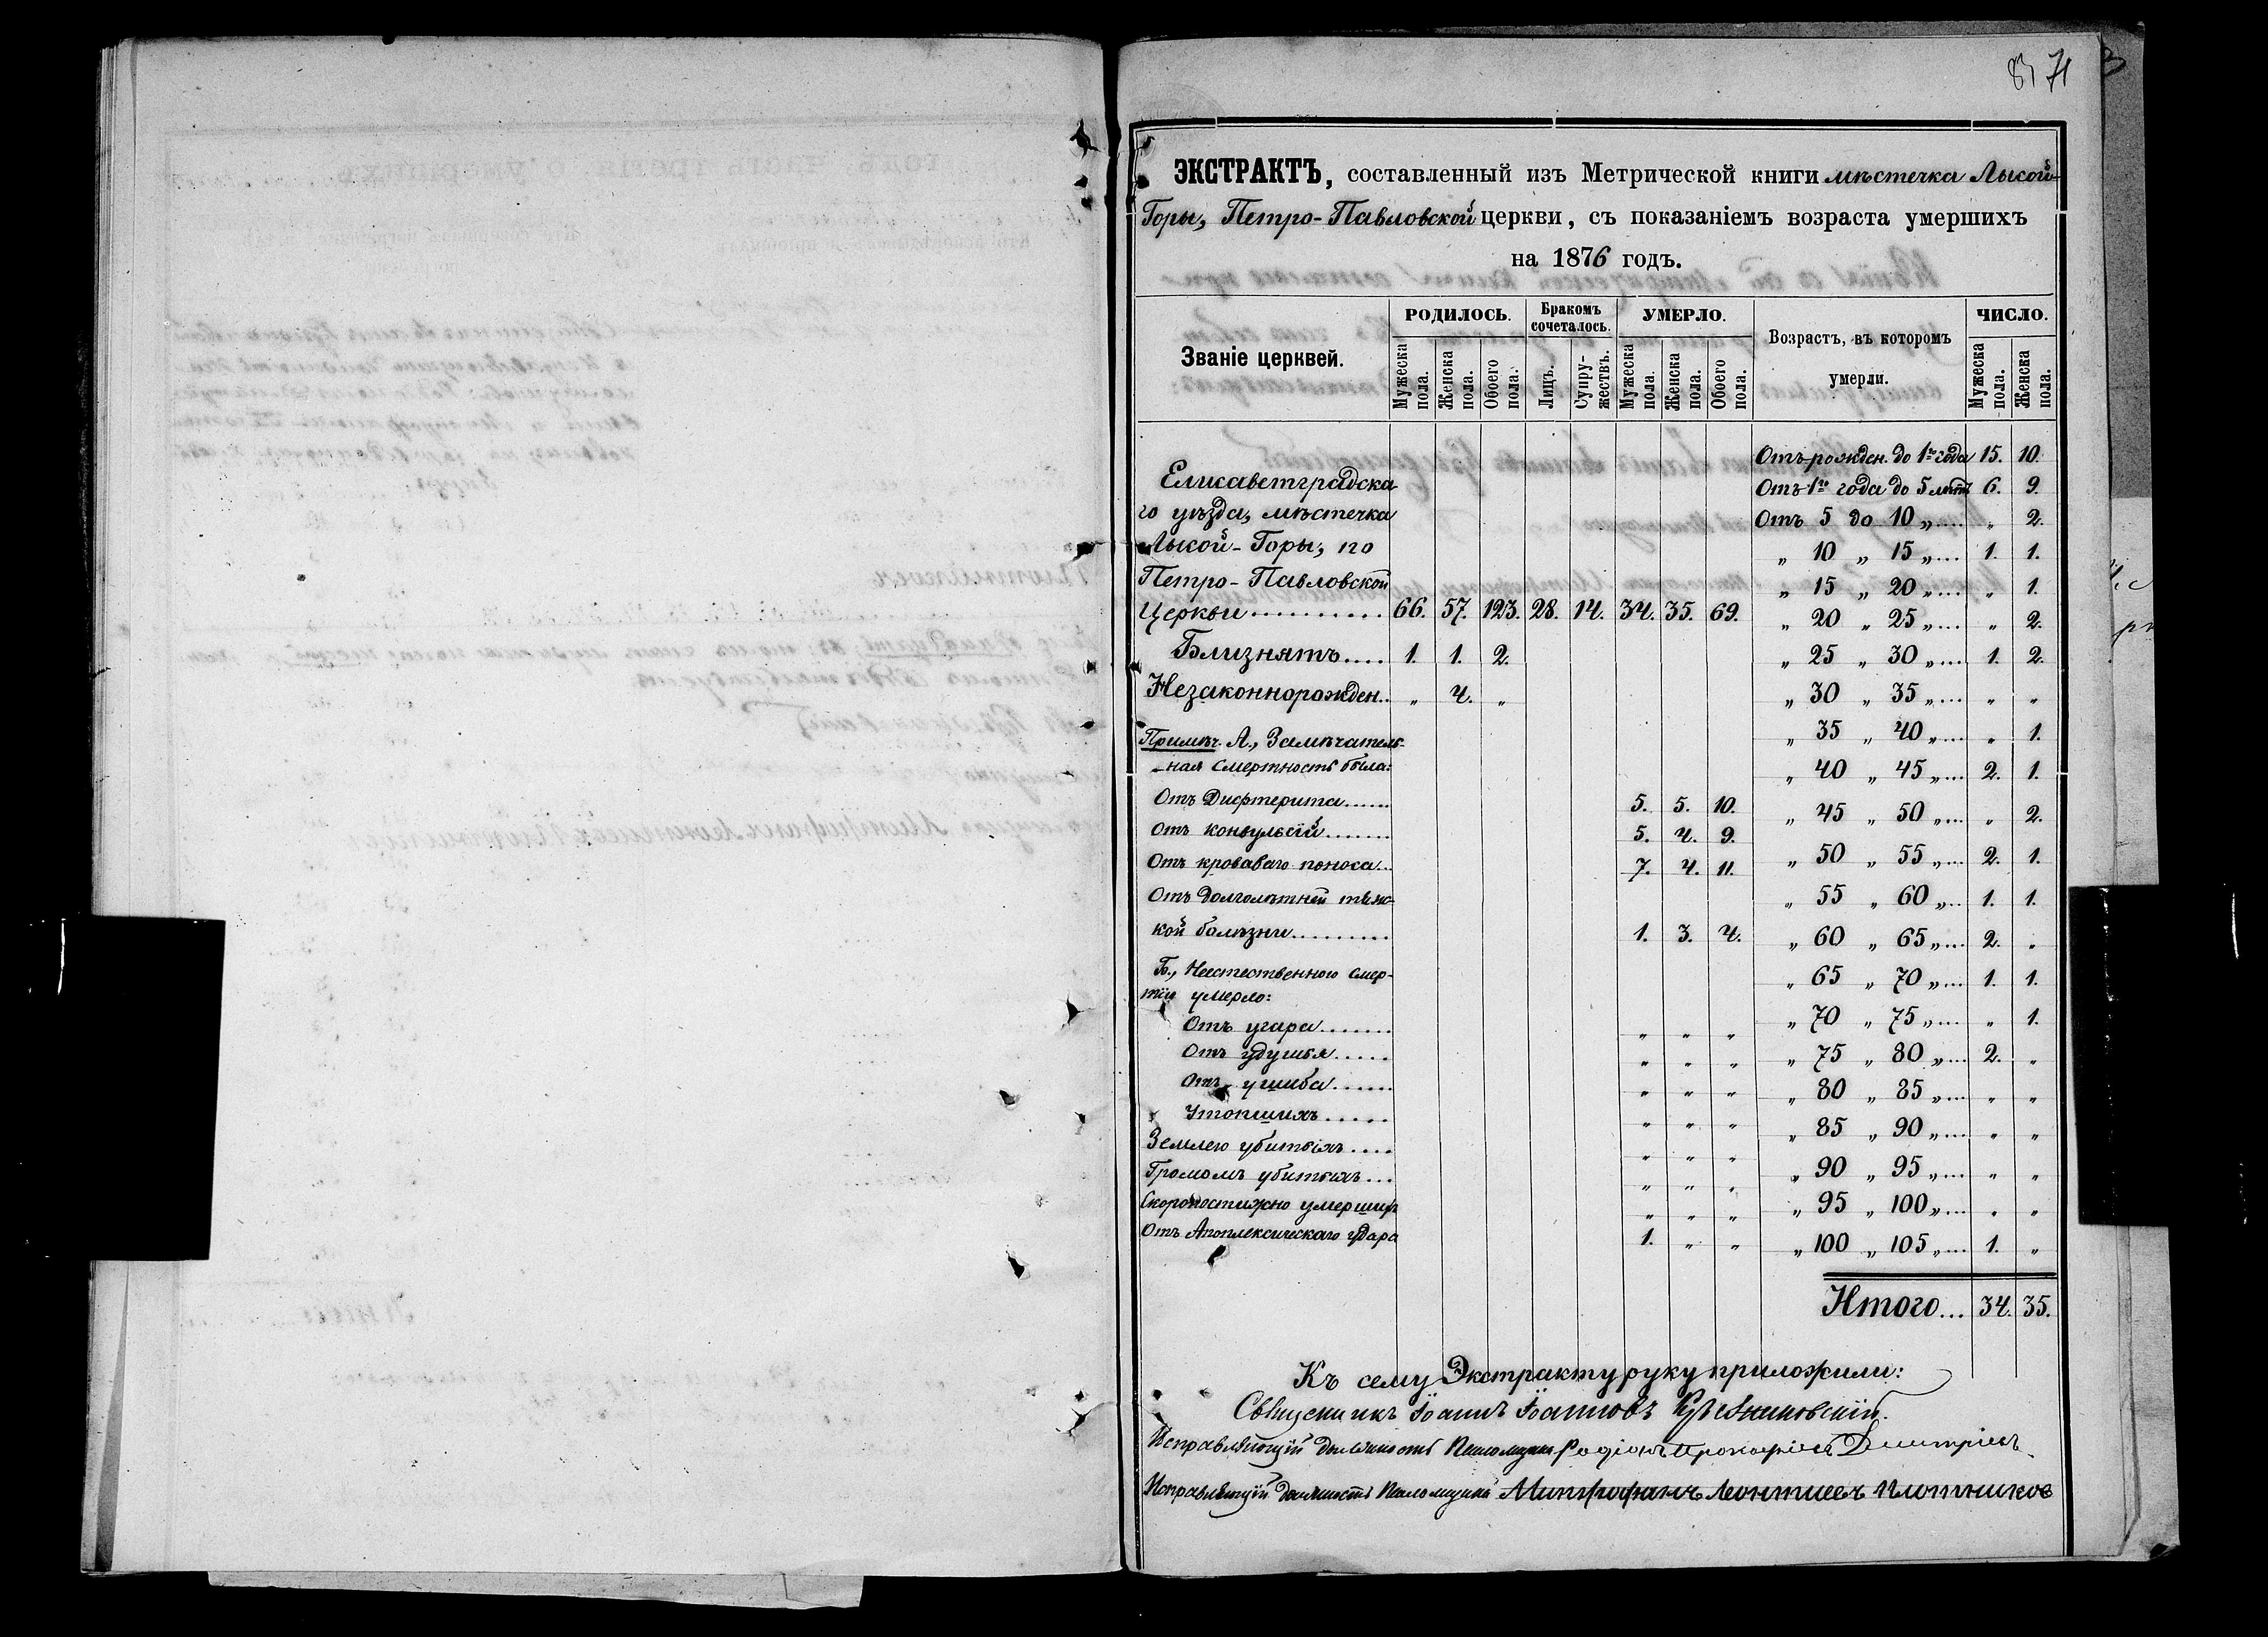 71
ЭКСТРАКТЪ, составленный изъ Метрической книги мѣстечка Лысой-
Горы, Петро-Павловской церкви, съ показаніемъ возраста умершихъ
на 1876 годъ.
Званіе церквей.
РОДИЛОСЬ.
Мужеска пола.
Женска пола.
Обоего пола.
Бракомъ сочеталось.
Лицъ.
Супру-жествъ.
УМЕРЛО.
Мужеска пола.
Женска пола.
Обоего пола.
Возрастъ, въ которомъ
умерли.
ЧИСЛО.
Мужеска пола.
Женска пола.
Елисаветградска-
го уѣзда, мѣстечка
Лысой-Горы, по
Петро-Павловской
Церкви .......... 66. 57. 123. 28. 14. 34. 35. 69.
Близнятъ .... 1. 1. 2.
Незаконнорожден.. „ 4. „
Примѣч. А., Замѣчатель-
-ная смертность была:
Отъ Дифтерита ...... 5. 5. 10.
Отъ конвульсій ....... 5. 4. 9.
Отъ кроваваго поноса... 7. 4. 11.
Отъ долголѣтней тяж-
кой болѣзни .......... 1. 3. 4.
Б., Неестественною смер-
тію умерло:
Отъ угара ....... „ „ „
Отъ удушья ..... „ „ „
Отъ ушиба ...... „ „ „
Утопшихъ ..... „ „ „
Землею убитыхъ .... „ „ „
Громомъ убитыхъ ... „ „ „
Скоропостижно умершихъ „ „ „
Отъ Апоплексическаго удара 1. „ „
Отъ рожден. до 1го года 15. 10.
Отъ 1го года до 5 лѣтъ 6. 9.
Отъ 5 до 10 „ .... „ 2.
„ 10 „ 15 „ ... 1. 1.
„ 15 „ 20 „ ... „ 1.
„ 20 „ 25 „ ... „ 2.
„ 25 „ 30 „ ... 1. 2.
„ 30 „ 35 „ ... „ „
„ 35 „ 40 „ ... „ 1.
„ 40 „ 45 „ ... 2. 1.
„ 45 „ 50 „ ... „ 2.
„ 50 „ 55 „ ... 2. 1.
„ 55 „ 60 „ ... 1. 1.
„ 60 „ 65 „ ... 2. „
„ 65 „ 70 „ ... 1. 1.
„ 70 „ 75 „ ... „ 1.
„ 75 „ 80 „ ... 2. „
„ 80 „ 85 „ ... „ „
„ 85 „ 90 „ ... „ „
„ 90 „ 95 „ ... „ „
„ 95 „ 100 „ ... „ „
„ 100 „ 105 „ ... 1. „
Итого ... 34. 35.
Къ сему Экстракту руку приложили:
Священникъ Іоаннъ Іоанновъ
Исправляющій должность Псаломщика Родіонъ Прокофіевъ Дмитріевъ
Исправляющій должность Псаломщика Митрофанъ Леонтіевъ Плотниковъ